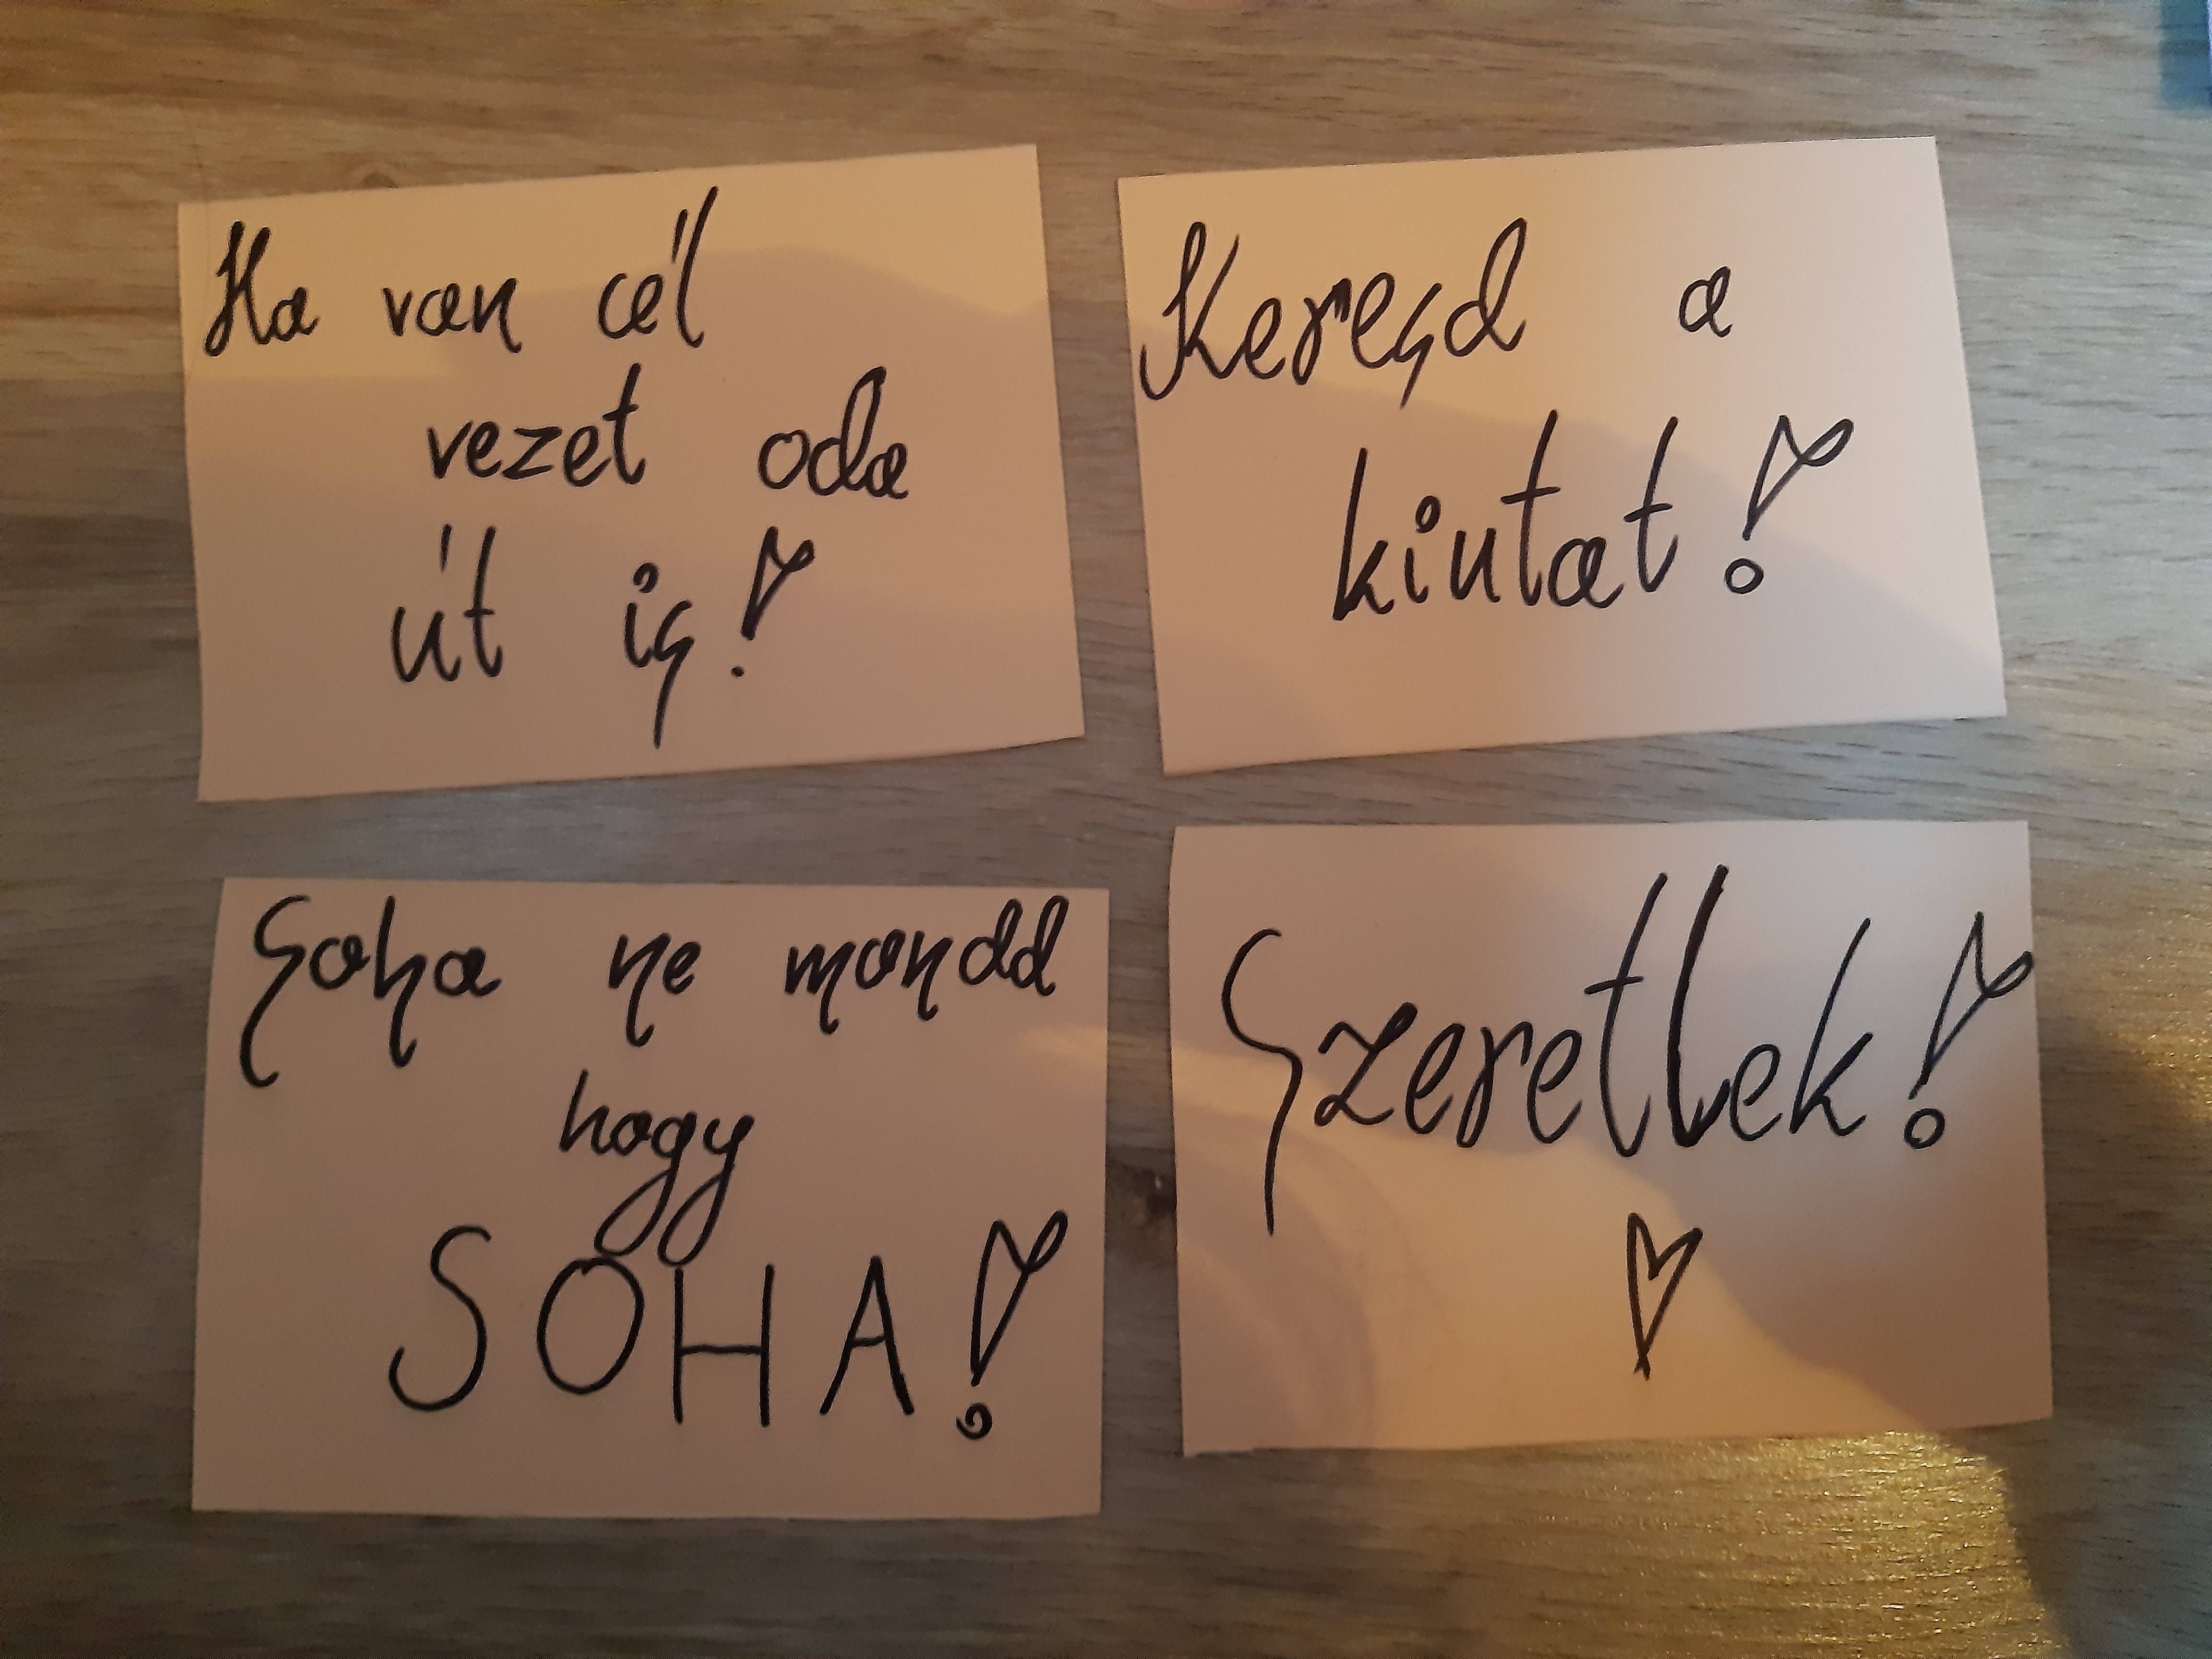 Ha van cél
vezet oda
út is!
Keresd a
kiutat!
Soha ne mondd
hogy
SOHA!
Szeretlek!